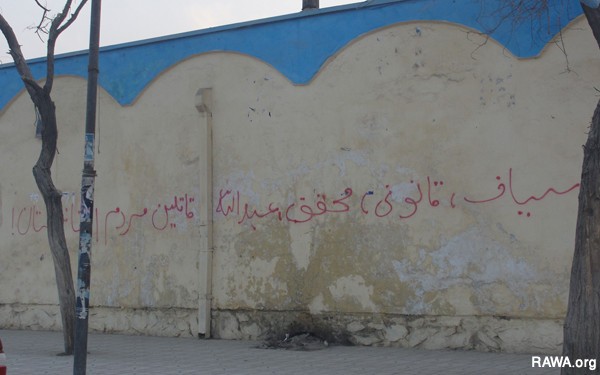 سیاف، قانونی، محقق، عبدالله قاتلین مردم افغانستان!
RAWA.org